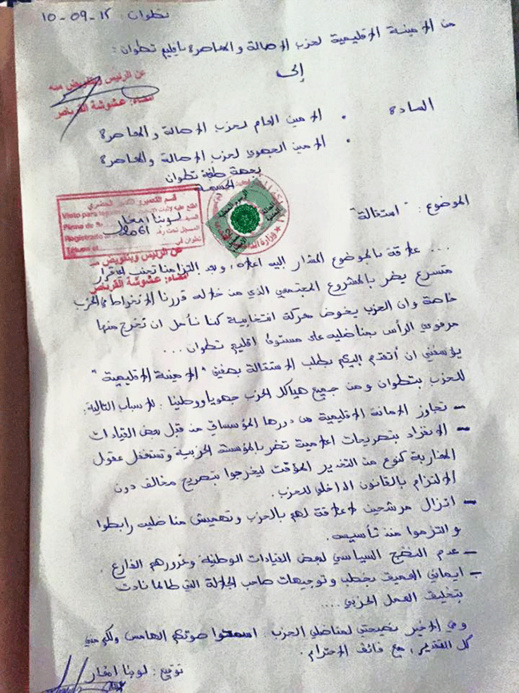 تطوان : 12-09-10
من الأمينة الإقليمية لحزب الأصالة و المعاصرة بإقليم تطوان :
إلى
السادة :
• الأمين العام لحزب الأصالة و المعاصرة
• الأمين الجهوي لحزب الأصالة والمعاصرة
بجهة طنجة تطوان
الحسيمة
عن الرئيس وبتفويض منه
إمضاء: عشوشة القريصر
الموضوع : "استقالة"
لوبنا أمغار
عن الرئيس وبتفويض منه
إمضاء: عشوشة القريصر
... علاقة بالموضوع المشار إليه أعلاه، وبعد التزامنا تجنب أي قرار
متسرع يضر بالمشروع المجتمعي الذي من خلاله قررنا الانخراط في الحزب
خاصة وأن الحزب يخوض معركة انتخابية كنا نأمل أن نخرج منها
مرفوعي الرأس بمناضليه على مستوى إقليم تطوان ...
يؤسفني أن أتقدم إليكم بطلب الاستقالة بصفتي "الأمينة الإقليمية"
للحزب بتطوان و من جميع هياكل الحزب جهويا و وطنيا . للأسباب التالية:
– تجاوز الأمانة الإقليمية من دورها المؤسساتي من قبل بعض القيادات
– الانفراد بتصريحات إعلامية تضر بالمؤسسة الحزبية وتستغفل عقول
المغاربة كنوع من التخدير المؤقت ليخرجوا بتصريح مخالف دون
الالتزام بالقانون الداخلي للحزب.
– انزال مرشحين لا علاقة لهم بالحزب وتهميش مناضليه رابطوا
و التزموا منذ تأسيسه.
– عدم النضج السياسي لبعض القيادات الوطنية وغرورهم الفارغ.
– إيماني العميق بخطب و توجيهات صاحب الجلالة التي طالما نادت
بتخليق العمل الحزبي....
وفي الأخير نصيحتي لمناضلي الحزب . اسمعوا صوتكم الهامس ولكم مني
كل التقدير ، مع فائق الاحترام .
توقيع : لوبنا أمغار